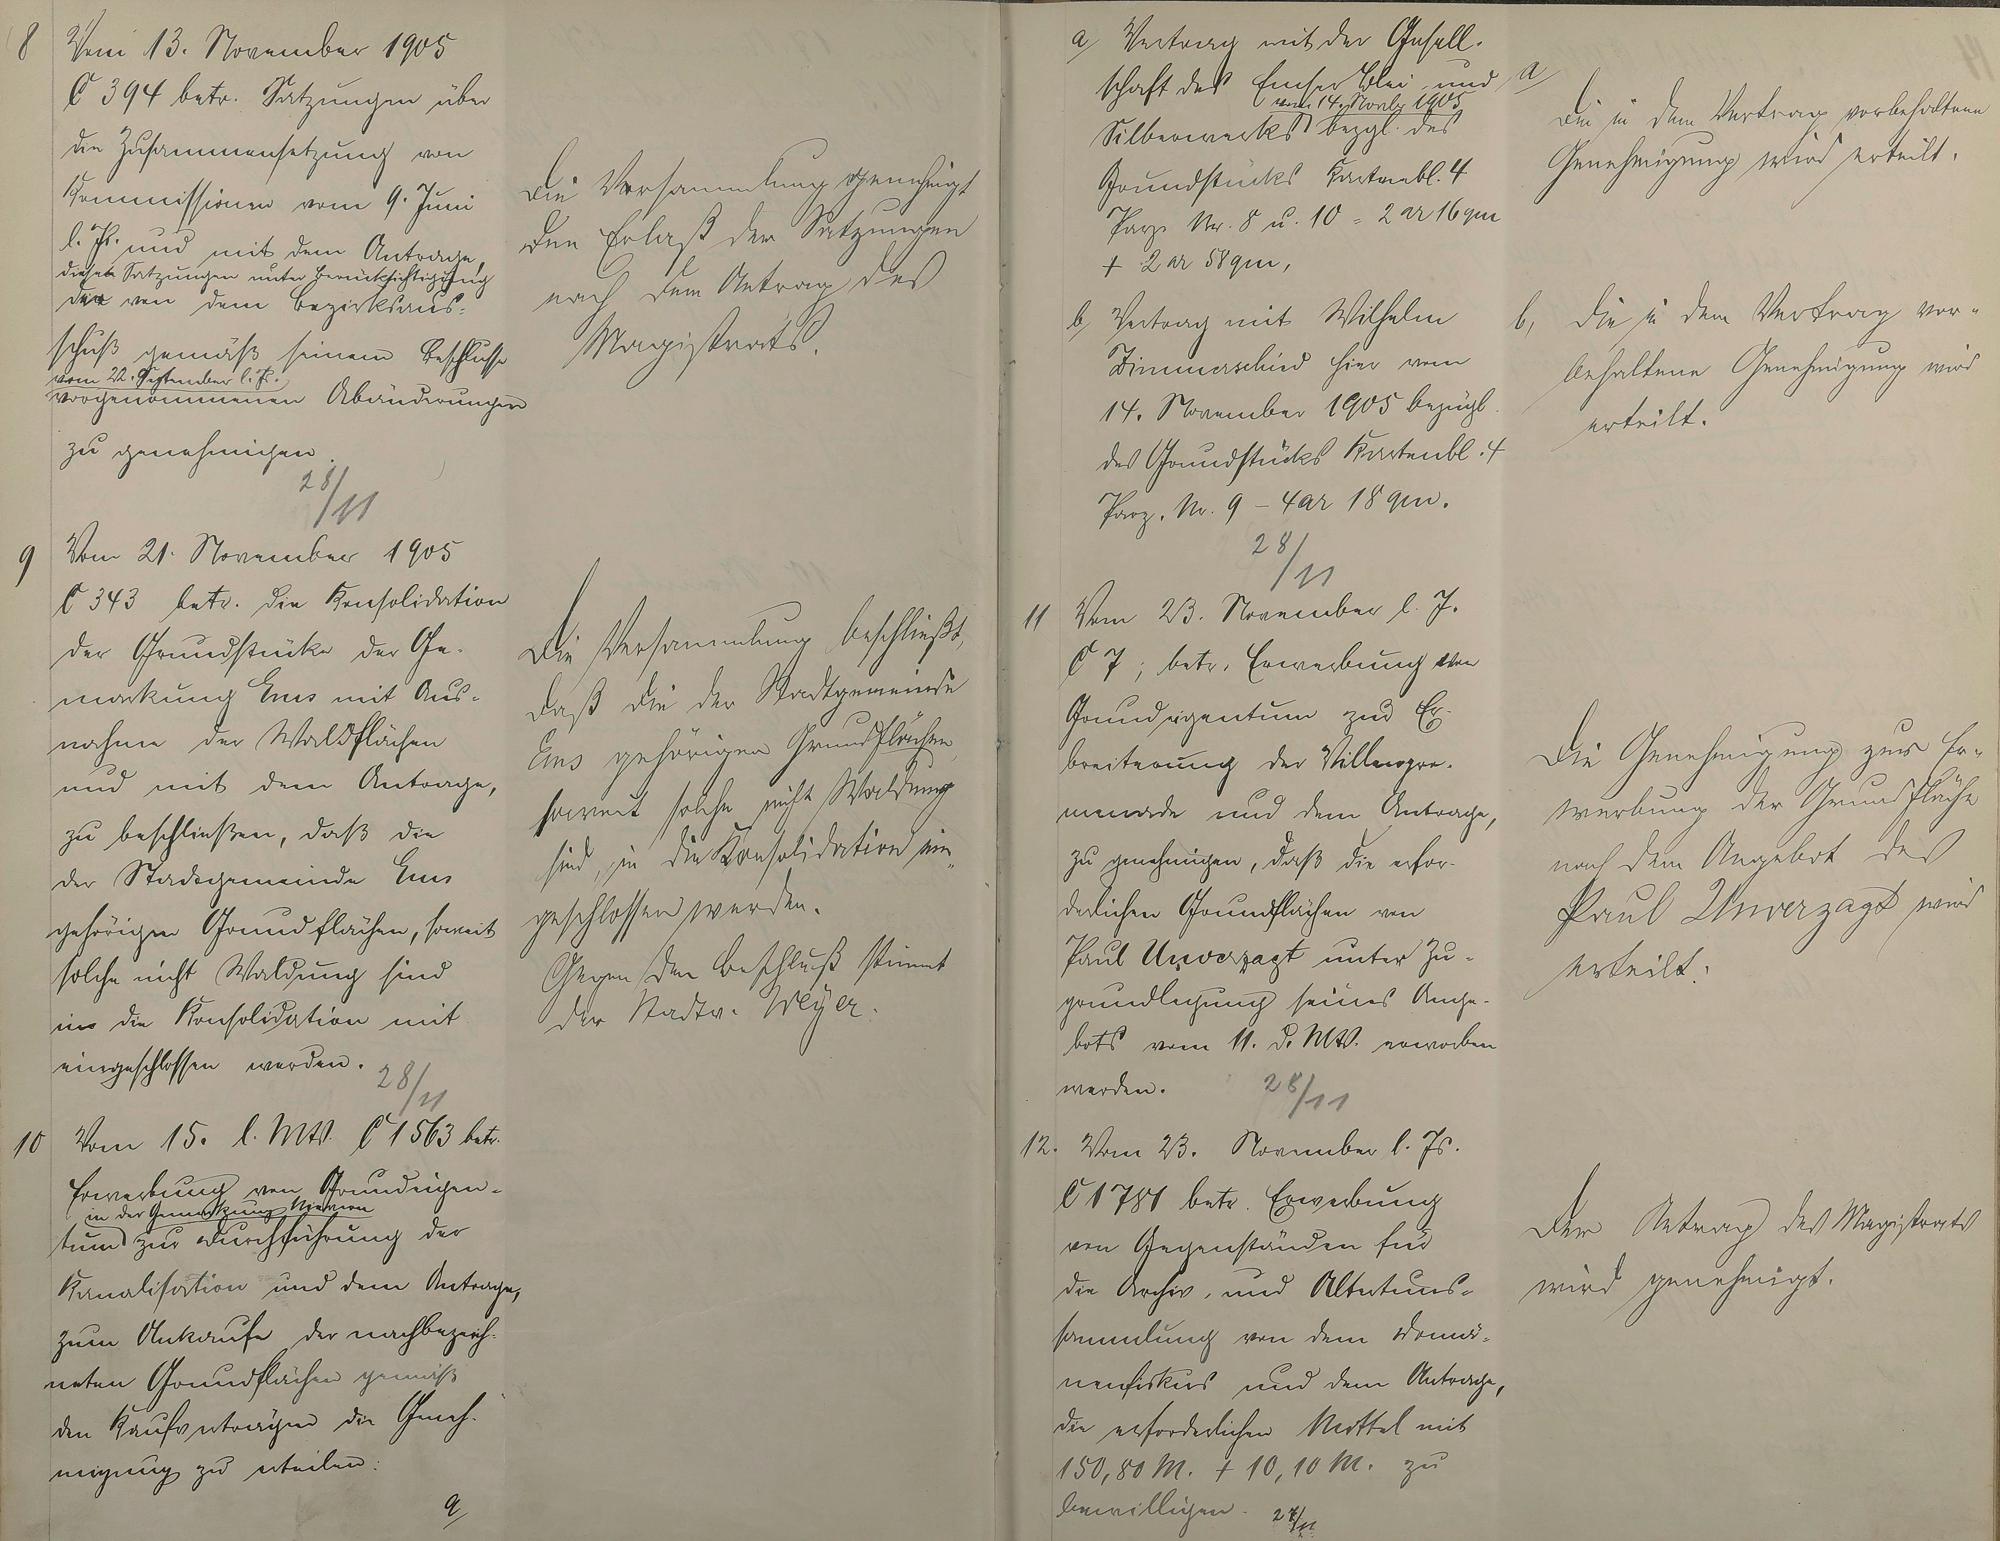 8 Vom 13. November 1905
C 394 betr. Satzungen über
die Zusammensetzung von
Kommissionen vom 9. Juni
l. Js. und mit dem Antrage,
diesen Satzungen unter Berücksichtigung
der von dem Bezirksaus-
schuß gemäß seinem Beschlusse
vom 22. September l. Js.
vorgenommenen Abänderungen
zu genehmigen.
28/11
Die Versammlung genehmigt
den Erlaß der Satzungen
nach dem Antrag des
Magistrats.
9 Vom 21. November 1905
C 343 betr. die Konsolidation
der Grundstücke der Ge-
markung Ems mit Aus-
nahme der Waldflächen
und mit dem Antrage,
zu beschließen, daß die
der Stadtgemeinde Ems
gehörigen Grundflächen, soweit
solche nicht Waldung sind
in die Konsolidation mit
eingeschlossen werden.
28/11
Die Versammlung beschließt,
daß die der Stadtgemeinde
Ems gehörigen Grundflächen,
soweit solche nicht Waldung
sind, in die Konsolidation ein-
geschlossen werden.
Gegen den Beschluß stimmt
der Stadtv. Meyer.
10 Vom 15. l. Mts. C 1563 betr.
Erwerbung von Grundeigen-
in der Gemarkung Nievern
tum zur Durchführung der
Kanalisation und dem Antrage,
zum Ankaufe der nachbezeich-
neten Grundflächen gemäß
den Kaufverträgen die Geneh-
migung zu erteilen:
a/
a/ Vertrag mit der Gesell-
schaft des Emser Blei- und
vom 14. Novbr 1905
Silberwerks bezgl. des
Grundstücks Kartenbl. 4
Parz. Nr. 8 u. 10 = 2 ar 16 qm
+ 2 ar 58 qm,
a/
Die in dem Vertrag vorbehaltene
Genehmigung wird erteilt.
b/ Vertrag mit Wilhelm
Zimmerschied hier vom
14. November 1905 bezügl.
des Grundstücks Kartenbl. 4
Parz. Nr. 9 – 4 ar 18 qm.
28/11
b, Die in dem Vertrag vor-
behaltene Genehmigung wird
erteilt.
11 Vom 23. November l. J.
C 7; betr. Erwerbung von
Grundeigentum zur Er-
breiterung der Villenpro-
menade und dem Antrage,
zu genehmigen, daß die erfor-
derlichen Grundflächen von
Paul Unverzagt unter Zu-
grundlegung seines Ange-
bots vom 11. d. Mts. erworben
werden.
28/11
Die Genehmigung zur Er-
werbung der Grundfläche
nach dem Angebot des
Paul Unverzagt wird
erteilt.
12. Vom 23. November l. Js.
C 1781 betr. Erwerbung
von Gegenständen für
die Archiv- und Altertums-
sammlung von dem Domä-
nenfiskus und dem Antrage,
die erforderlichen Mittel mit
150,80 M. + 10,10 M. zu
bewilligen.
27/11
Der Antrag des Magistrats
wird genehmigt.